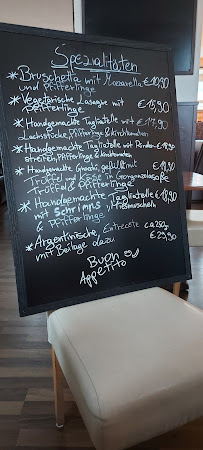 Spezialitäten
* Bruschetta mit Mozzarella €10,90
und Pfifferlinge
* Vegetarische Lasagne mit €15,90
Pfifferlinge
* Handgemachte Tagliatelle mit €17,90
Lachsstücke, Pfifferlinge & Kirschtomaten
* Handgemachte Tagliatelle mit Rinder- €18,90
streifen, Pfifferlinge & Kirschtomaten
* Handgemachte Gnocchi, gefüllt mit
Trüffel und Käse in Gorgonzolasoße
Trüffel & Pfifferlinge
* Handgemachte Tagliatelle €18,90
mit Schrimps, Miesmuscheln
& Pfifferlinge
* Argentinische Entrecote ca 250gr
mit Beilage dazu €29,90
Buon
Appetito